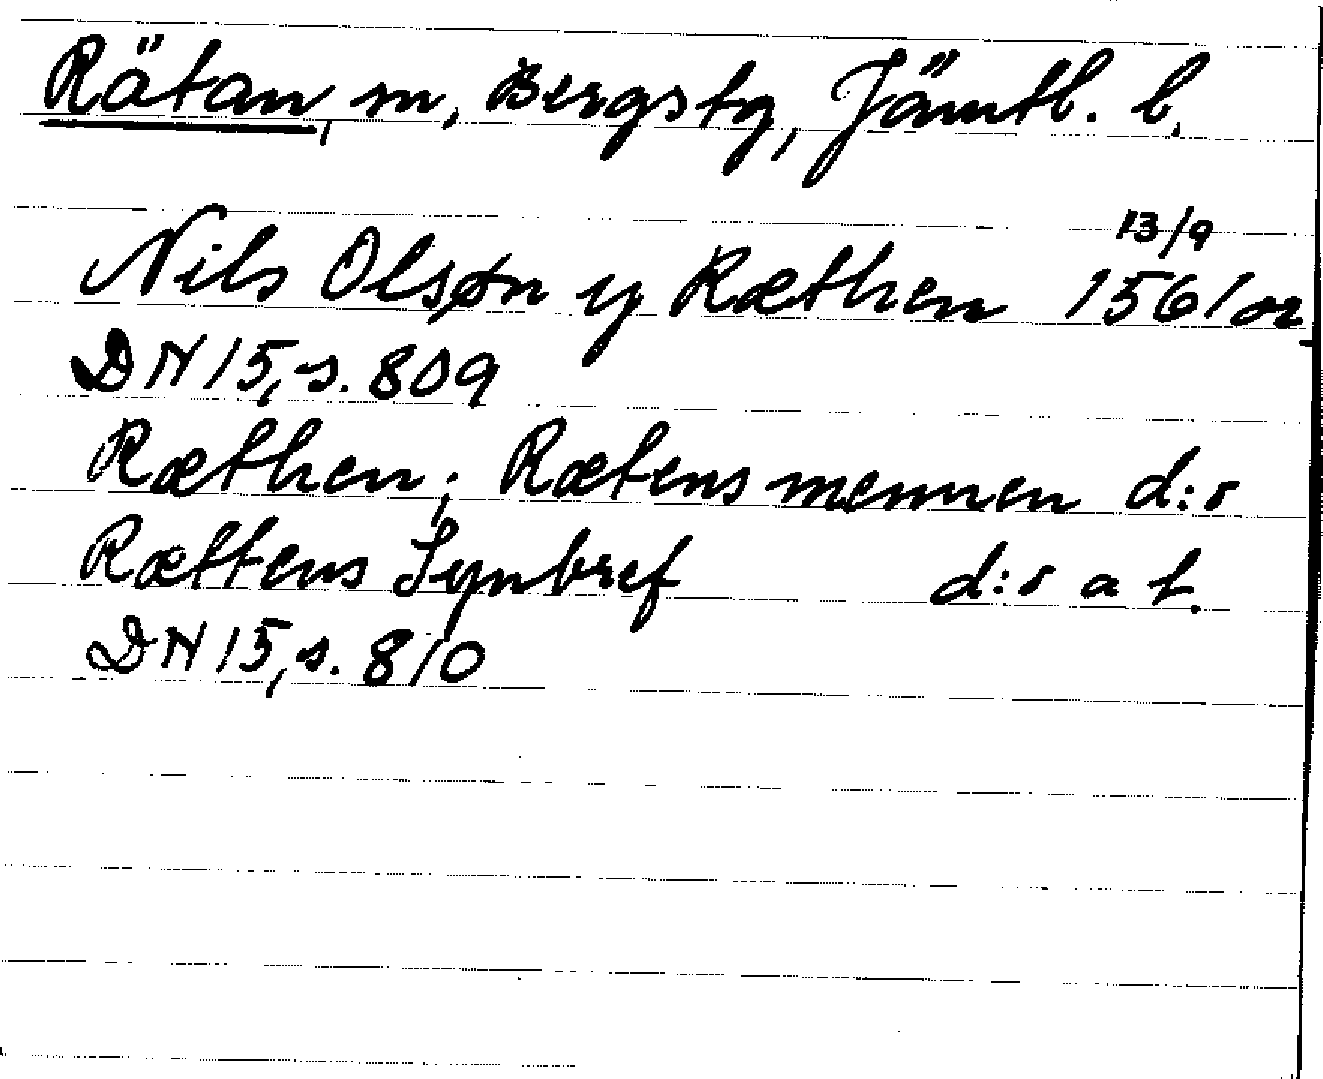 Rätan, sn, Bergs tg, Jämtl. l.
13/9
Nils Olsøn y Ræthen 1561 or
DN 15, s. 809
Ræthen; Rætens mennen d:o
Rættens Synbref d:o a t.
DN 15, s. 810